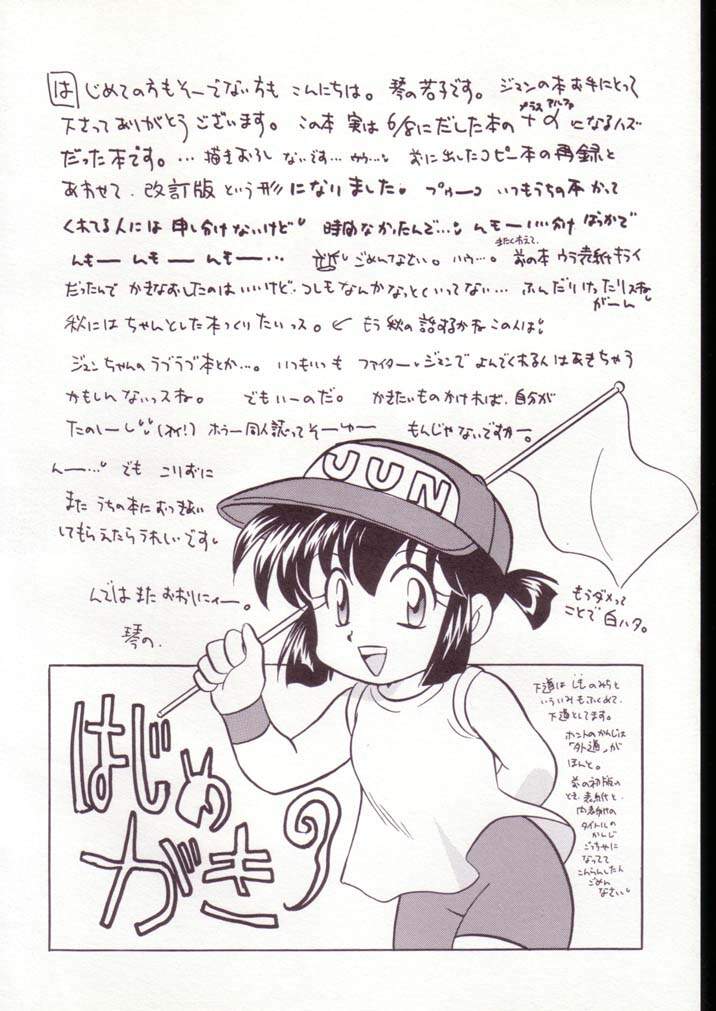 はじめての方もそーでない方も こんにちは。琴の若子です。ジュンの本お手にとって
下さってありがとうございます。この本 実は6/8にだした本の +α プラス アルファ になるハズ
だった本です。…描きおろしないです…ウゥ…。前に出したコピー本の再録と
あわせて、改訂版という形になりました。 いつもうちの本かって
くれてる人には申し分けないけど 時間なかったんで… んもー いい分けばっかで
んもー んもー んもー… ごめんなさい。ハウ…。またくわえて、前の本 ウラ表紙キライ
だったんで かきなおしたのはいいけど、つしもなんかなっとくいってない… ふんだりけったりスね
がーん
秋にはちゃんとした本つくりたいっス。 もう秋の話するかなこの人は
ジュンちゃんのラブラブ本とか…。いつもいつも ファイター・ジュンでよんでくれる人はあきちゃう
かもしんないっスね。 でもいーのだ。 かきたいものかければ、自分が
たのしーし (オイ!) ホラー同人誌ってそーゆー もんじゃないですかー。
んー… でも こりずに
また うちの本におつきあい
してもらえたらうれしいです
んでは また おわりにィー。
琴の.
JUN
もうダメって
ことで白ハタ。
はじめ
がき
下道は しものみちと
いういみもふくめて、
下道としてます。
ホントのかんじは
「外道」が
ほんと。
前の初版の
とき、表紙と
内表紙の
タイトルの
かんじ
ごっちゃに
なってて
こんらんしたん
ごめん
なさい